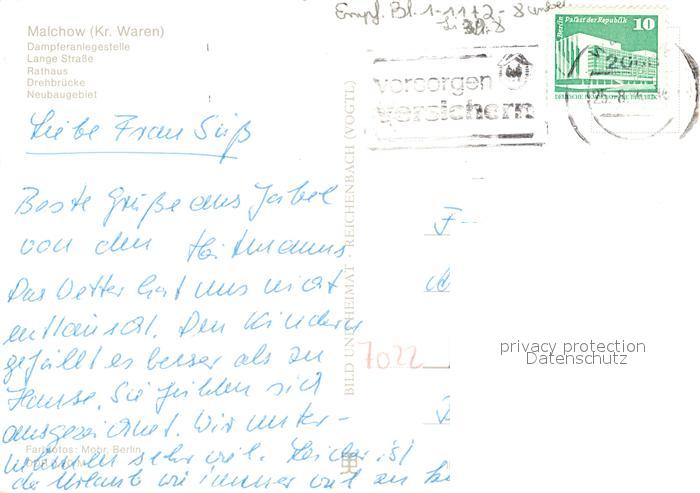 Malchow (Kr. Waren)
Dampferanlegestelle
Lange Straße
Rathaus
Drehbrücke
Neubaugebiet
Empf. Bl. 1-11+2-8
Berlin Palast der Republik 10
vorsorgen
versichern
25.-8.
Liebe Frau Süß
Beste Grüße aus Jabel
von den Heitmanns
Das Wetter hat uns nicht
enttäuscht. Den Kindern
gefällt es besser als zu
Hause. Sie fühlen sich
ausgezeichnet. Wir unter-
nehmen sehr viel. Leider ist
de Urlaub wie immer viel zu
Farbfotos: Mohr, Berlin
BILD UND HEIMAT · REICHENBACH (VOGTL)
7022
privacy protection
Datenschutz